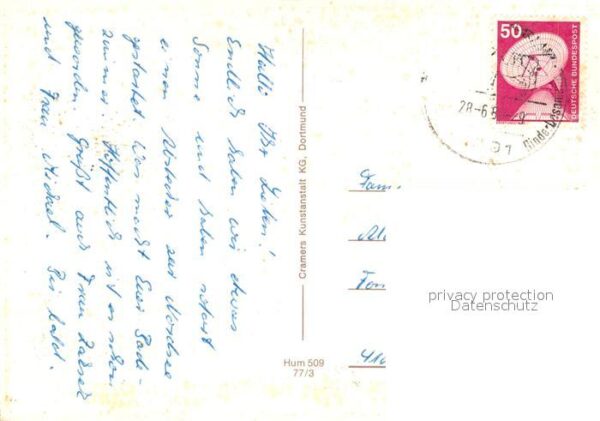 Hallo Ihr Lieben!
Endlich haben wir etwas
Sonne und haben sofort
einen Abstecher zur Nordsee
gestartet. Was macht Euer Bade-
zimmer? Hoffentlich ist es schön
geworden. Grüßt auch Frau
und Frau Michael. Bis bald.
Cramers Kunstanstalt KG, Dortmund
Hum 509
77/3
50
DEUTSCHE BUNDESPOST
28-6
Fam.
privacy protection
Datenschutz